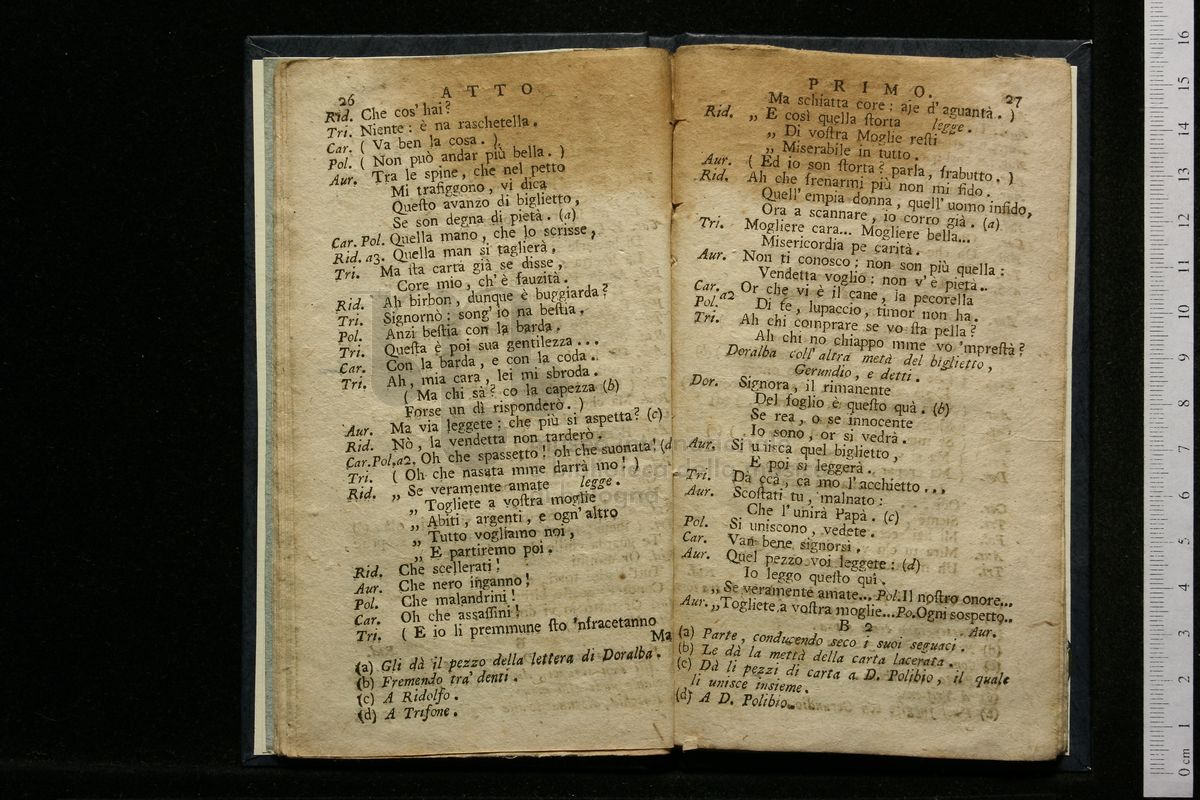 26 ATTO
Rid. Che cos' hai?
Tri. Niente: è na raschetella.
Car. ( Va ben la cosa. )
Pol. ( Non può andar più bella. )
Aur. Tra le spine, che nel petto
Mi trafiggono, vi dica
Queſto avanzo di biglietto,
Se son degna di pietà. (a)
Car. Pol. Quella mano, che lo scrisse,
Rid. a3. Quella man si taglierà,
Tri. Ma ſta carta già se disse,
Core mio, ch' è fauzità.
Rid. Ah birbon, dunque è buggiarda?
Tri. Signornò: song' io na beſtia.
Pol. Anzi beſtia con la barda.
Tri. Queſta è poi sua gentilezza...
Car. Con la barda, e con la coda..
Tri. Ah, mia cara, lei mi sbroda.
( Ma chi sà? co la capezza (b)
Forse un dì risponderò. )
Aur. Ma via leggete: che più si aspetta? (c)
Rid. Nò, la vendetta non tarderò.
Car. Pol. a2. Oh che spassetto! oh che suonata! (d
Tri. ( Oh che nasata mme darrà mo! )
Rid. „ Se veramente amate legge.
„ Togliete a voſtra moglie
„ Abiti, argenti, e ogn' altro
„ Tutto vogliamo noi,
„ E partiremo poi.
Rid. Che scellerati!
Aur. Che nero inganno!
Pol. Che malandrini!
Car. Oh che assaſſini!
Tri. ( E io li premmune ſto 'nfracetanno
Ma
(a) Gli dà il pezzo della lettera di Doralba.
(b) Fremendo tra' denti.
(c) A Ridolfo.
(d) A Trifone.
PRIMO. 27
Ma schiatta core: aje d' aguantà. )
Rid. „ E così quella ſtorta legge.
„ Di voſtra Moglie reſti
„ Miserabile in tutto.
Aur. ( Ed io son ſtorta? parla, frabutto. )
Rid. Ah che frenarmi più non mi fido.
Quell' empia donna, quell' uomo infido,
Ora a scannare, io corro già. (a)
Tri. Mogliere cara... Mogliere bella...
Misericordia pe carità.
Aur. Non ti conosco: non son più quella:
Vendetta voglio: non v' è pietà..
Car. Or che vi è il cane, la pecorella
Pol. a2 Di te, lupaccio, timor non ha.
Tri. Ah chi comprare se vo ſta pella?
Ah chi no chiappo mme vo 'mpreſtà?
Doralba coll' altra metà del biglietto,
Gerundio, e detti.
Dor. Signora, il rimanente
Del foglio è queſto quà. (b)
Se rea, o se innocente
Io sono, or si vedrà.
Aur. Si unisca quel biglietto,
E poi si leggerà.
Tri. Dà ccà, ca mo l' acchietto...
Aur. Scoſtati tu, malnato:
Che l' unirà Papà. (c)
Pol. Si uniscono, vedete.
Car. Van bene signorsì.
Aur. Quel pezzo voi leggete: (d)
Io leggo queſto quì.
„ Se veramente amate... Pol. Il noſtro onore...
Aur. „ Togliete a voſtra moglie... Po. Ogni sospetto..
B 2 Aur.
(a) Parte, conducendo seco i suoi seguaci.
(b) Le dà la mettà della carta lacerata.
(c) Dà li pezzi di carta a D. Polibio, il quale
li unisce insieme.
(d) A D. Polibio.